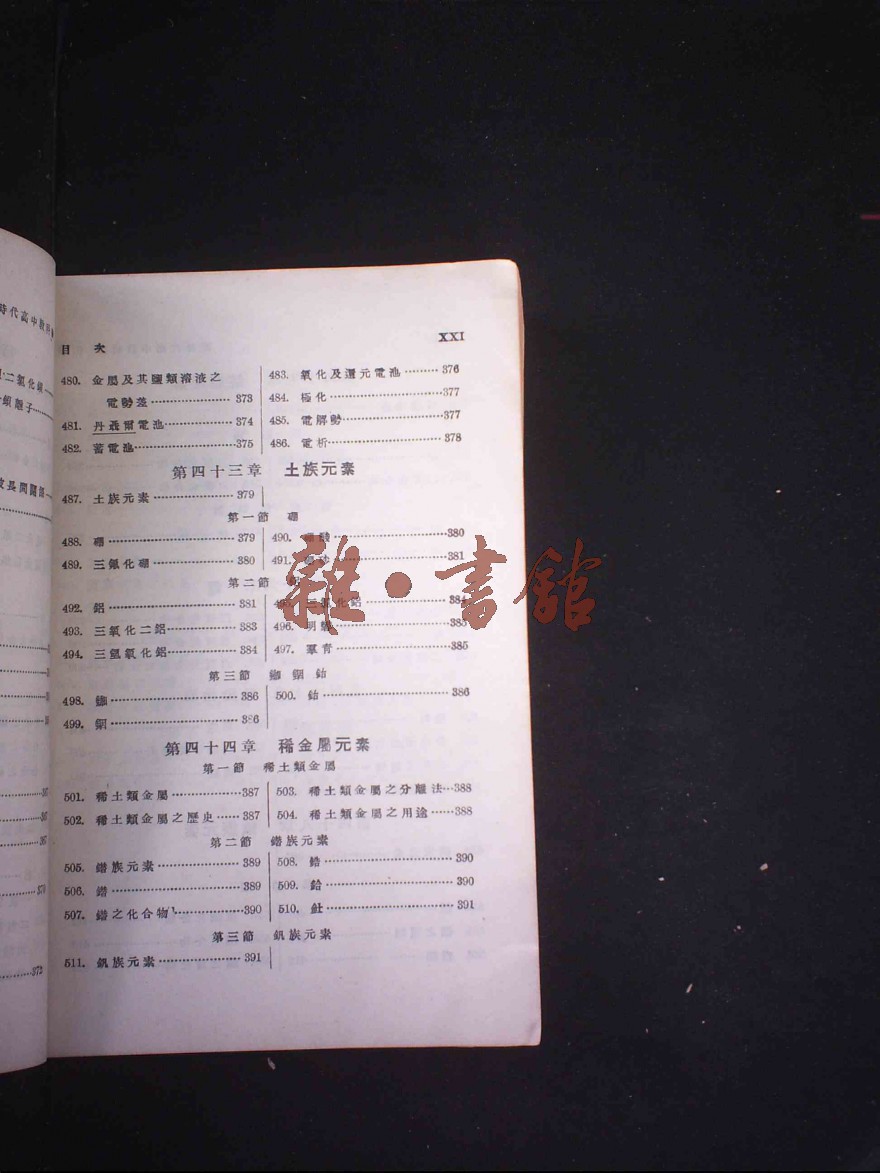 時代高中教科
目 次
XXI
480. 金屬及其鹽類溶液之
電勢差 373
481. 丹聶爾電池 374
482. 蓄電池 375
483. 氧化及還元電池 376
484. 極化 377
485. 電解勢 377
486. 電析 378
第四十三章 土族元素
487. 土族元素 379
第一節 硼
488. 硼 379
489. 三氟化硼 380
490. 380
491. 381
第二節
492. 鋁 381
493. 三氧化二鋁 383
494. 三氫氧化鋁 384
495. 化鋁 384
496. 明礬 385
497. 羣青 385
第三節
498. 386
499. 386
500. 386
第四十四章 稀金屬元素
第一節 稀土類金屬
501. 稀土類金屬 387
502. 稀土類金屬之歷史 387
503. 稀土類金屬之分離法 388
504. 稀土類金屬之用途 388
第二節 鐟族元素
505. 鐟族元素 389
506. 鐟 389
507. 鐟之化合物 390
508. 鋯 390
509. 鉿 390
510. 釷 391
第三節 釩族元素
511. 釩族元素 391
372
雜·書館